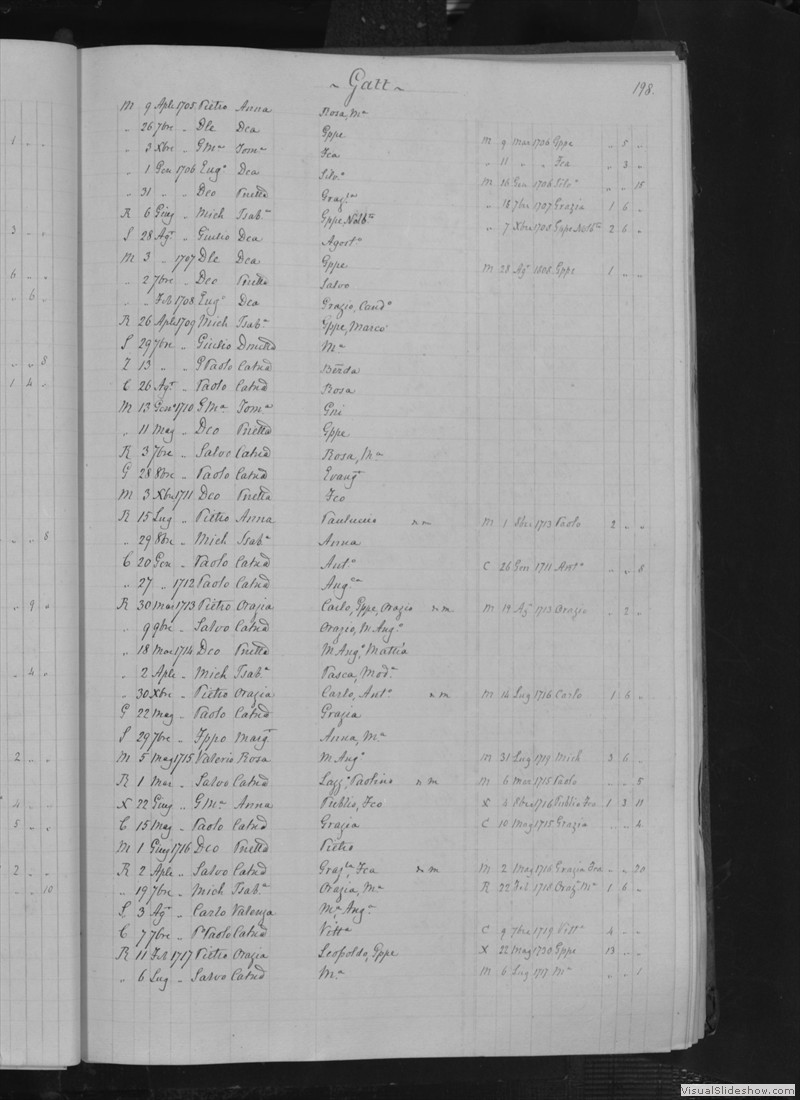 ~ Gatt ~ 198.
M 9 Aple 1705 Pietro Anna Rosa, Mª
„ 26 7bre „ Dle Dca Gppe
1 „ „ „ 3 Xbre „ GMª Tomª Fca M 9 Mar 1706 Gppe „ 5 „
„ 1 Gen 1706 Eugº Dca Silvª „ 11 „ „ Fca „ 3 „
„ 31 „ „ Dco Pnetta Grazla M 16 Gen 1706 Silvª „ „ 15
R 6 Giug „ Mich Isabª Gppe, Natbta „ 18 7bre 1707 Grazia 1 6 „
3 „ „ S 28 Agt „ Giulio Dca Agostº „ 7 Xbre 1708 Gppe Natbta 2 6 „
M 3 „ 1707 Dle Dca Gppe M 28 Agt 1808 Gppe 1 „ „
6 „ „ „ 2 7bre „ Dco Pnetta Salvo
„ 6 „ „ „ Feb 1708 Eugº Dca Grazio, Candª
R 26 Aple 1709 Mich Isabª Gppe, Marco
S 29 7bre „ Giulio Dnetta Mª
„ „ 8 Z 13 „ „ GPaolo Catnd Bernda
1 4 „ C 26 Agt „ Paolo Catnd Rosa
M 13 Genº 1710 GMª Tomª Gni
„ 11 Mag „ Dco Pnetta Gppe
R 3 7bre „ Salvo Catnd Rosa, Mª
G 28 8bre „ Paolo Catnd Evangta
M 3 Xbre 1711 Dco Pnetta Fco
R 15 Lug „ Pietro Anna Paulucio nm M 1 8bre 1713 Paolo 2 „ „
„ „ 8 „ 29 8bre „ Mich Isabª Anna
C 20 Gen „ Paolo Catnd Antª C 26 Gen 1711 Antª „ „ 8
„ 27 „ 1712 Paolo Catnd Angca
„ 9 „ R 30 Mar 1713 Pietro Orazia Carlo, Gppe, Orazio nm M 19 Agt 1713 Orazio „ 2 „
„ 9 9bre „ Salvo Catnd Orazio, M Angº
„ 18 Mar 1714 Dco Pnetta M Angº Mattia
„ 4 „ „ 2 Aple „ Mich Isabª Pasca, Modª
„ 30 Xbre „ Pietro Orazia Carlo, Antº nm M 14 Lug 1716 Carlo 1 6 „
G 22 Mag „ Paolo Catnd Grazia
S 29 7bre „ Fppo Margt Anna, Mª
2 „ „ M 5 Mag 1715 Valerio Rosa M Angº M 31 Lug 1719 Mich 3 6 „
R 1 Mar „ Salvo Catnd Lazzº, Paolino nm M 6 Mar 1715 Paolo „ „ 5
4 „ „ X 22 Giug „ GMª Anna Publio, Fco X 4 8bre 1716 Publio Fco 1 3 11
5 „ „ C 15 Mag „ Paolo Catnd Grazia C 10 Mag 1715 Grazia „ „ 4
M 1 Giug 1716 Dco Pnetta Pietro
2 „ „ R 2 Aple „ Salvo Catnd Grazla, Fca nm M 2 Mag 1716 Grazia Fca „ „ 20
„ „ 10 „ 19 7bre „ Mich Isabª Orazia, Mª R 22 Feb 1718 Orazª Mª 1 6 „
S 3 Agt „ Carlo Valenza Mª Angª
C 7 7bre „ PPaolo Catnd Vitta C 9 7bre 1719 Vittª 4 „ „
R 11 Feb 1717 Pietro Orazia Leopoldo, Gppe X 22 Mag 1730 Gppe 13 „ „
„ 6 Lug „ Salvo Catnd Mª M 6 Lug 1717 Mª „ „ 1
VisualSlideshow.com